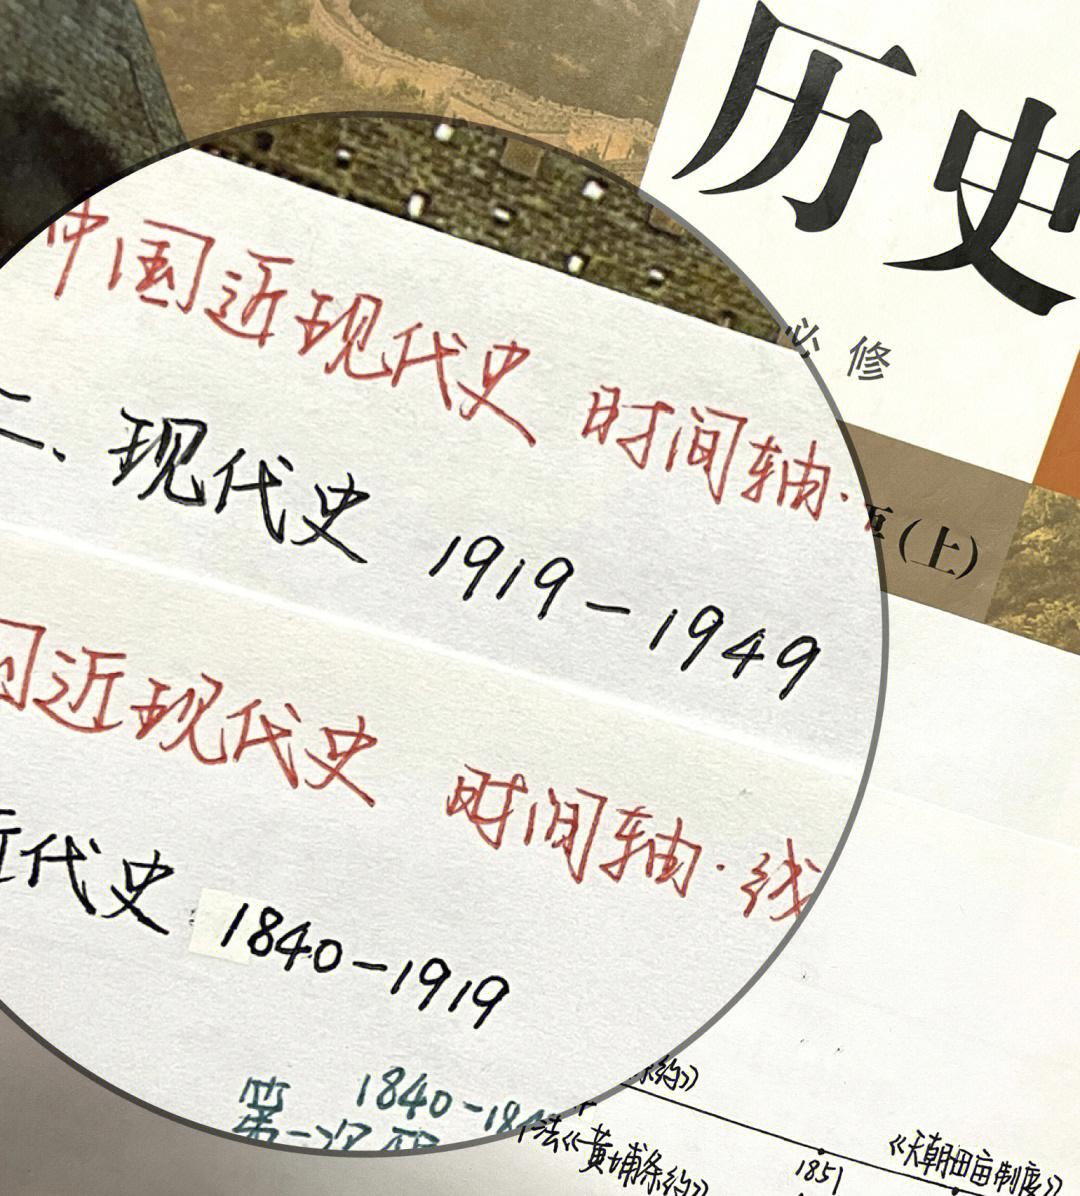 历史
必修
（上）
中国近现代史 时间轴·
二、现代史 1919-1949
国近现代史 时间轴·线
近代史 1840-1919
1840-184
第一次
条约》
法《黄埔条约》
1851
《天朝田亩制度》